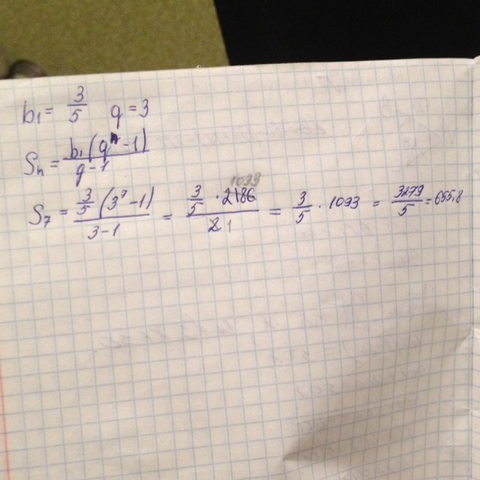 b₁ = 3/5 q = 3
Sₙ = b₁(qⁿ - 1)/q - 1
S₇ = 3/5(3⁷ - 1)/3 - 1 = 3/5 · 2186 1093/2 1 = 3/5 · 1093 = 3279/5 = 655,8